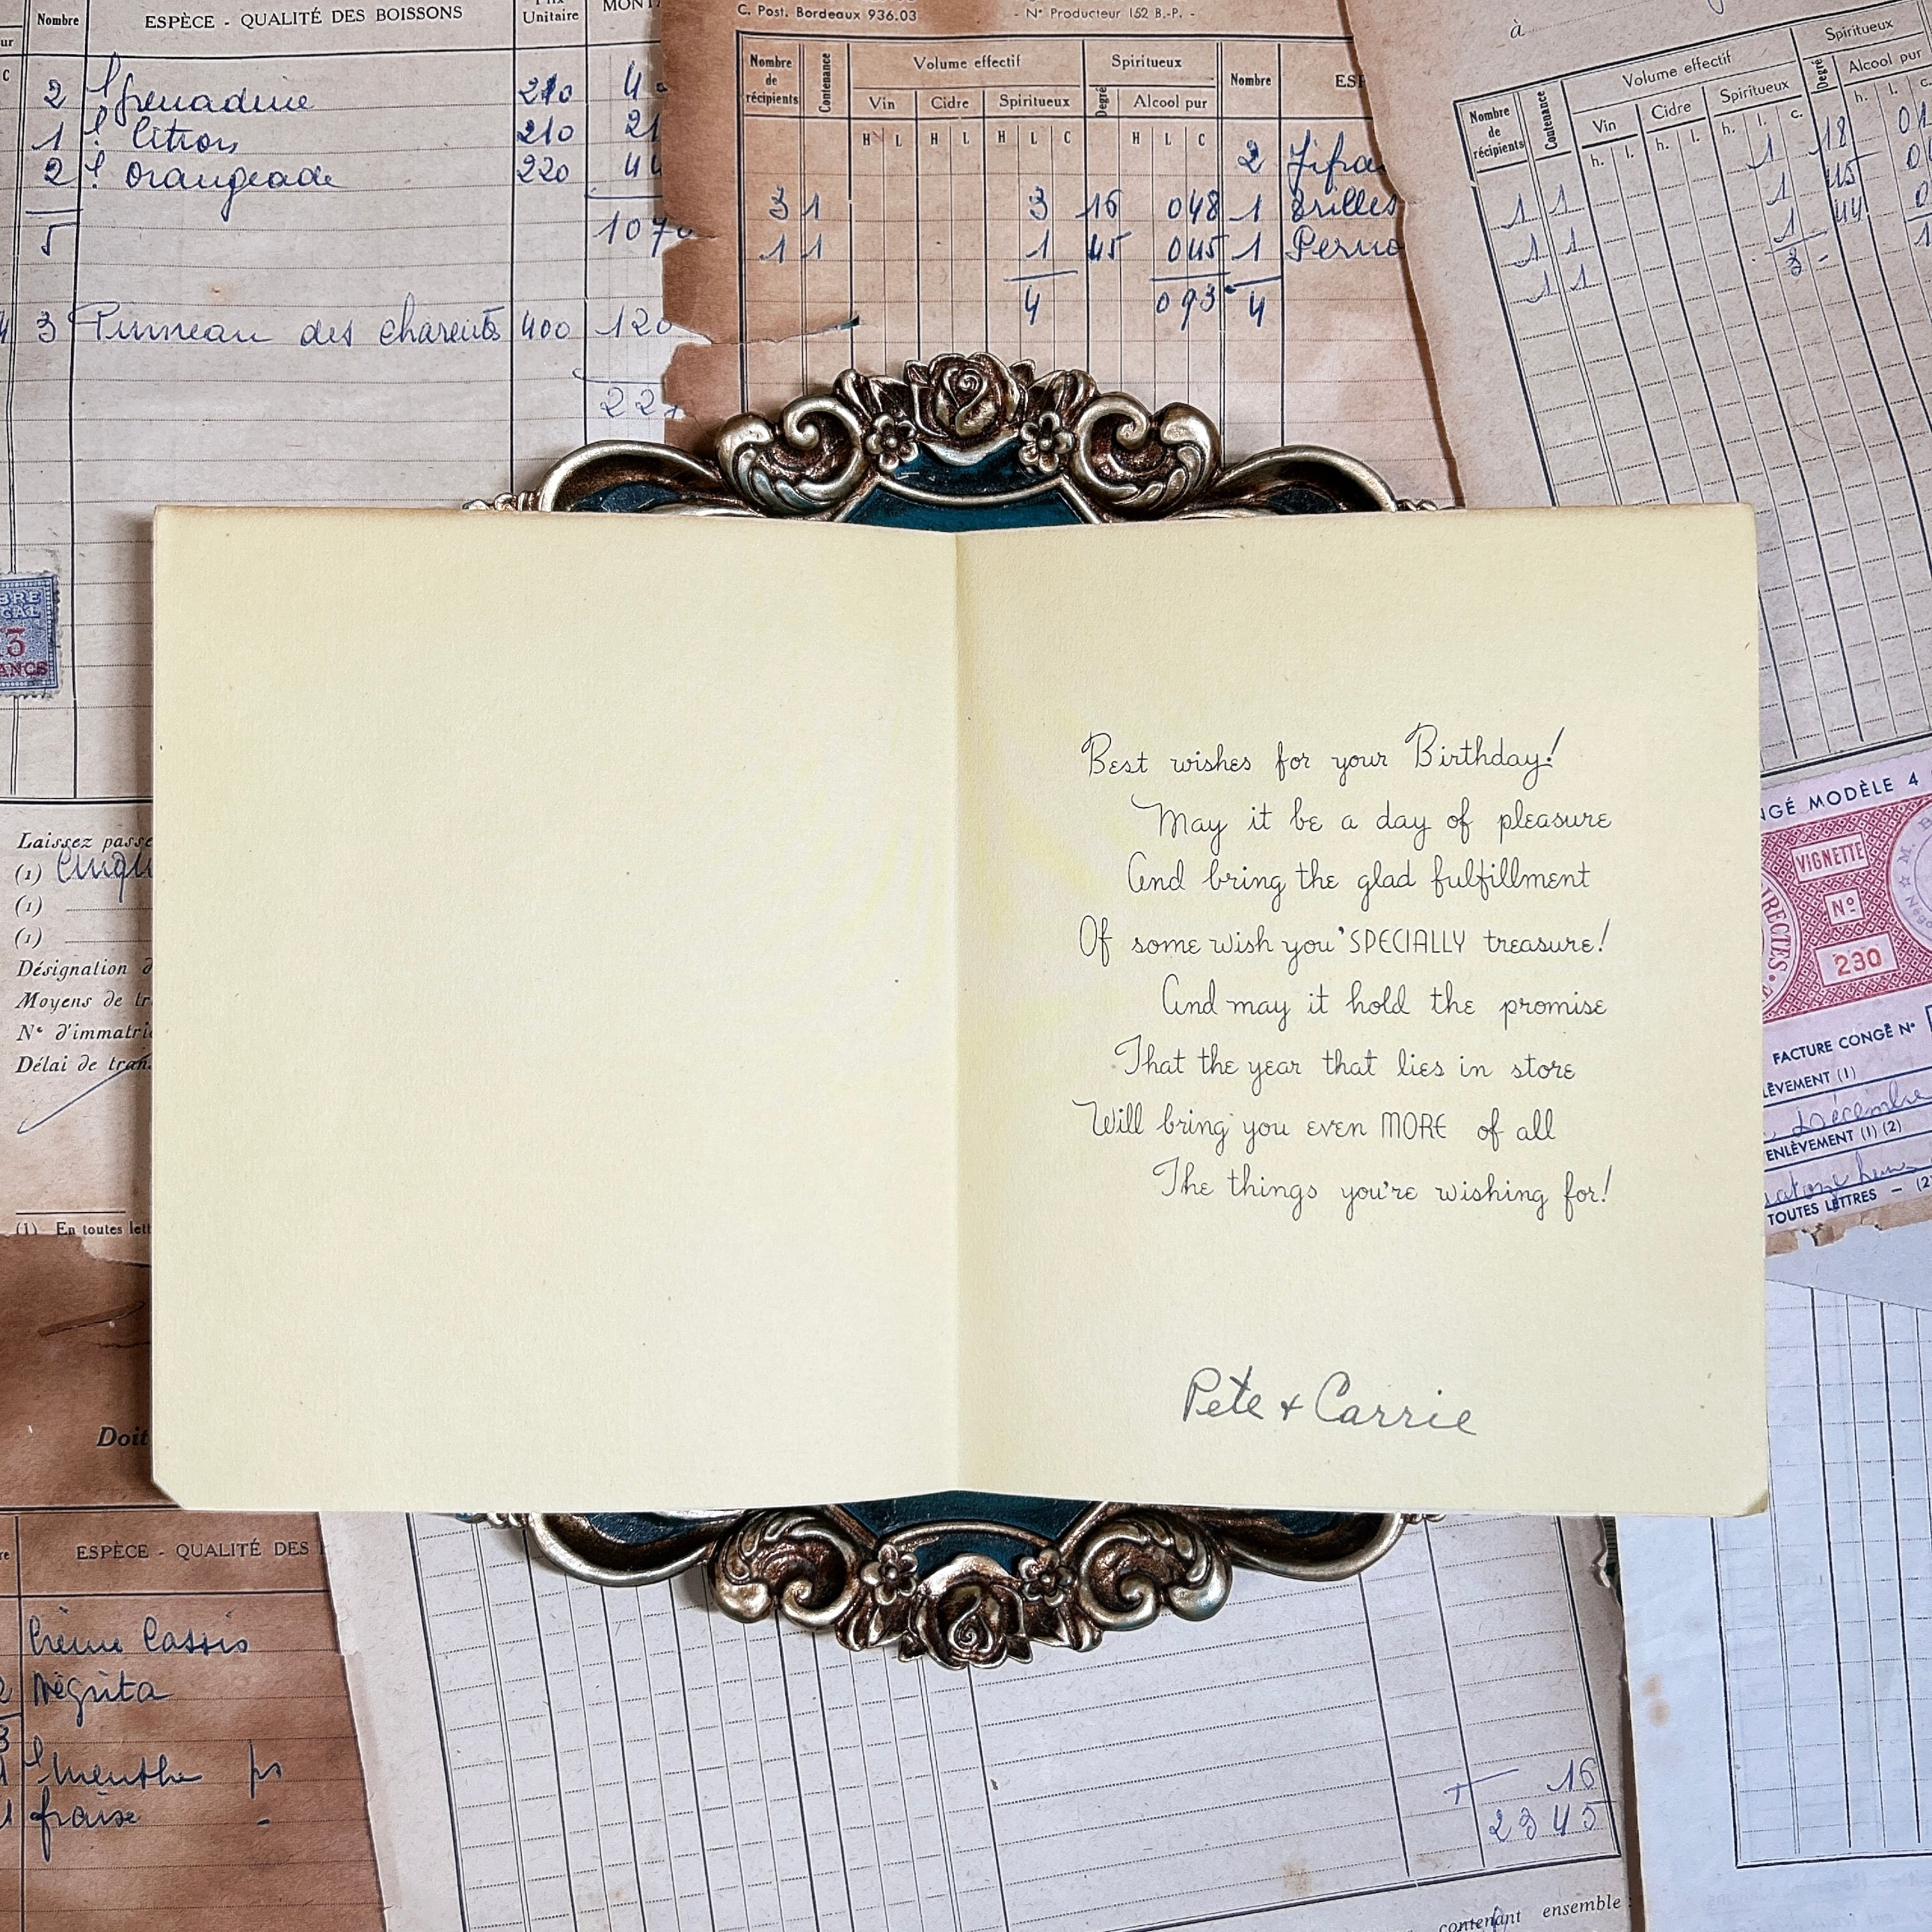 Nombre
ESPÈCE - QUALITÉ DES BOISSONS
Unitaire
2 grenadine 210
1 l. citron 210
2 l. orangeade 220
5
107
3 Pinneau des charentes 400 120
C. Post. Bordeaux 936.03
- N° Producteur 152 B.-P. -
Nombre de récipients
Contenance
Volume effectif
Spiritueux
Nombre
Vin Cidre Spiritueux Degré Alcool pur
H L H L H L C H L C
2
3 1 3 16 048 1
1 1 1 45 045 1
4 093 4
à
Nombre de récipients
Contenance
Volume effectif
Spiritueux
Vin Cidre Spiritueux Degré Alcool pur
h. l. h. l. h. l. c. h. l. c.
1 18
1 1 1 45
1 1 1 44
1 1 3
3
Laissez
(1)
(1)
(1)
Désignation
Moyens de
N° d'immatri
Délai de
(1) En toutes
Best wishes for your Birthday!
May it be a day of pleasure
And bring the glad fulfillment
Of some wish you 'SPECIALLY treasure!
And may it hold the promise
That the year that lies in store
Will bring you even MORE of all
The things you're wishing for!
Pete + Carrie
MODÈLE 4
VIGNETTE
N°
230
FACTURE CONGÉ N°
(1)
Décembre
ENLÈVEMENT (1) (2)
TOUTES LETTRES
Doit
ESPÈCE - QUALITÉ DES
Crème Cassis
Négrita
menthe
fraise
16
2345
contenant ensemble :